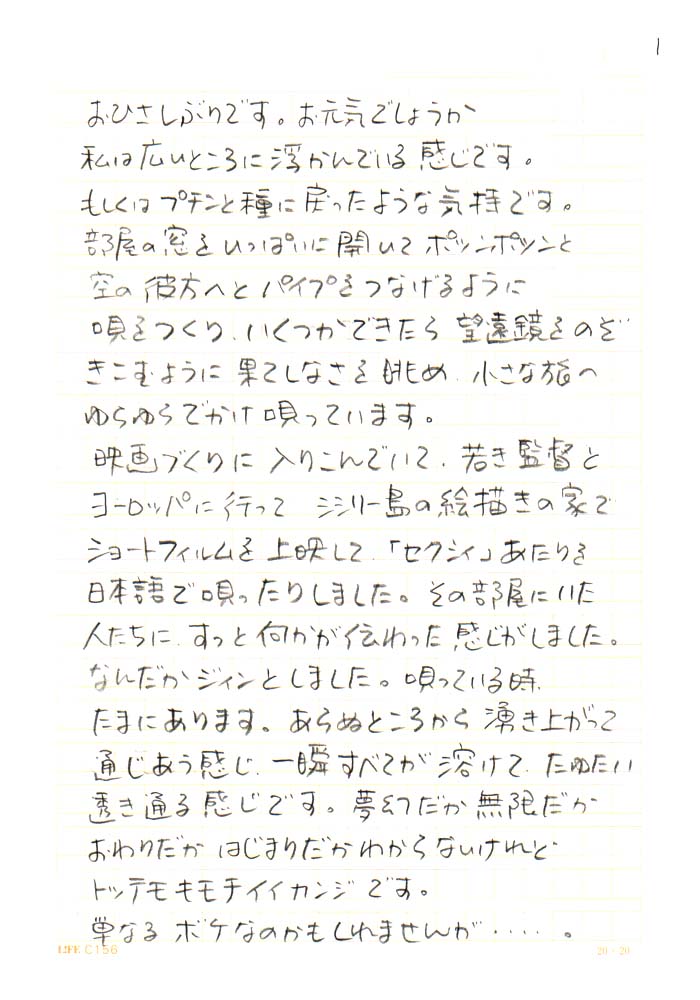 1
おひさしぶりです。お元気でしょうか
私は広いところに浮かんでいる感じです。
もしくはプチンと種に戻ったような気持です。
部屋の窓をいっぱいに開いてポツンポツンと
空の彼方へとパイプをつなげるように
唄をつくり、いくつかできたら望遠鏡をのぞ
きこむように果てしなさを眺め、小さな旅へ
ゆらゆらでかけ唄っています。
映画づくりに入りこんでいて、若き監督と
ヨーロッパに行って シシリー島の絵描きの家で
ショートフィルムを上映して、「セクシィ」あたりを
日本語で唄ったりしました。その部屋にいた
人たちに、すっと何かが伝わった感じがしました。
なんだかジィンとしました。唄っている時、
たまにあります。あらぬところから湧き上がって
通じあう感じ、一瞬すべてが溶けて、たゆたい
透き通る感じです。夢幻だか無限だか
おわりだかはじまりだかわからないけれど
トッテモキモチイイカンジです。
単なるボケなのかもしれませんが・・・・・。
LIFE C156
20・20